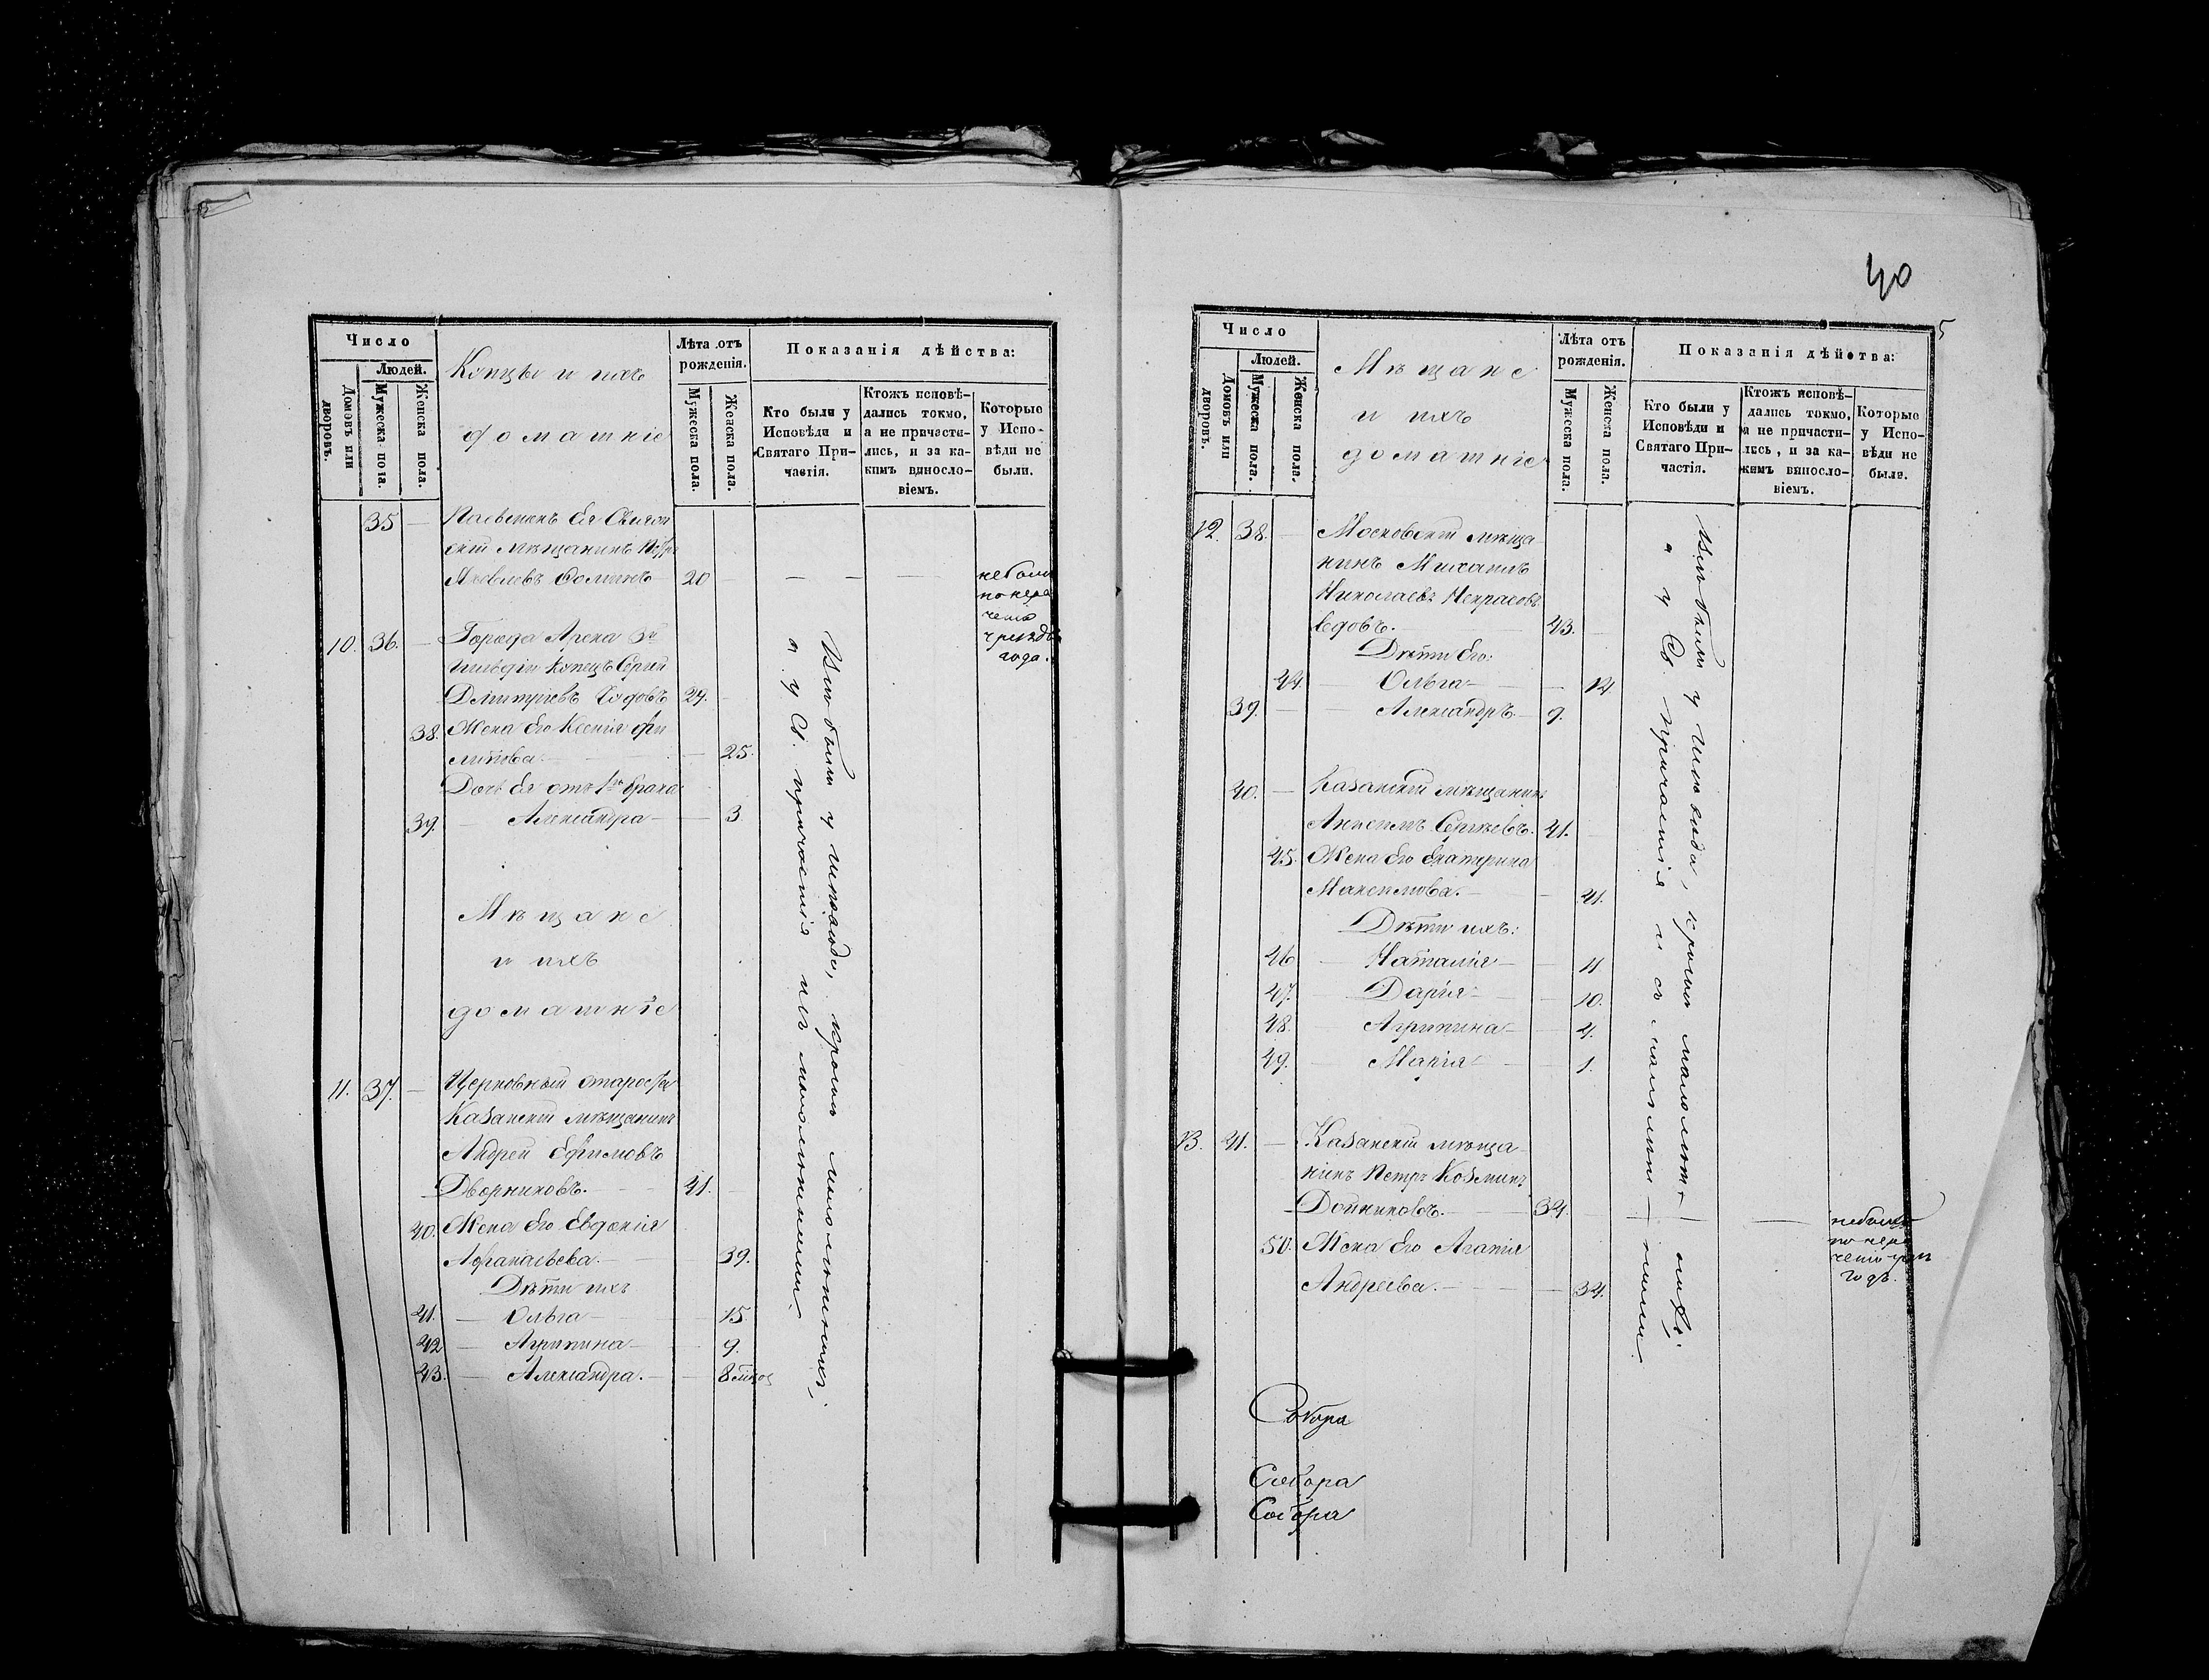 Число
Людей.
Домовъ или дворовъ.
Мужеска пола.
Женска пола.
Купцы и ихъ
домашніе
Лѣта отъ рожденія.
Мужеска пола.
Женска пола.
Показанія дѣйства:
Кто были у Исповѣди и Святаго Причастія.
Ктожъ исповѣдались токмо, а не причастились, и за какимъ винословіемъ.
Которые у Исповѣди не были.
35 —
скій мѣщанинъ
Яковлевъ 20 — — — не были
по нерачению
10. 36. — Города Арска 3й
гильдіи Купецъ Сергій
Дмитріевъ 24. —
38. Жена Его Ксенія Фи
липова — — 25.
Дочь Ея отъ 1го брака
39. — Александра — — 3
Мѣщане
и ихъ
домашніе
11. 37. — Церковный староста
Казанскій мѣщанинъ
Андрей Ефимовъ
Дворниковъ. — 41. —
40. Жена Его Евдокія
Афанасьева. — — 39.
Дѣти ихъ
41. — Ольга — — 15
42 — Агрипина — — 9.
43. — Александра. — — 8
Всѣ были у исповѣди, кромѣ малолѣтнихъ,
а у Св. причастія и съ малолѣтними.
40
5
Число
Людей.
Домовъ или дворовъ.
Мужеска пола.
Женска пола.
Мѣщане
и ихъ
домашніе
Лѣта отъ рожденія.
Мужеска пола.
Женска пола.
Показанія дѣйства:
Кто были у Исповѣди и Святаго Причастія.
Ктожъ исповѣдались токмо, а не причастились, и за какимъ винословіемъ.
Которые у Исповѣди не были.
12. 38. — Московскій мѣща
нинъ Михаилъ
Николаевъ
43. —
Дѣти Его:
44. — Ольга — — 14.
39. — — Александръ. — 9.
40. — Казанскій мѣщанинъ
Анисимъ Сергѣевъ. 41. —
45. Жена Его Екатерина
Максимова. — — 41.
Дѣти ихъ:
46 — Наталія — — 11
47. — Дарія — — 10.
48. — Агрипина — — 4.
49. — Марія — — 1.
13. 41. — Казанскій мѣща
нинъ Петръ Козминъ
Дойниковъ. — 34. — — — не были
по нера
50. Жена Его Агапія
Андреева. — — 34.
Всѣ были у исповѣди, кромѣ малолѣт
а у Св. причастія и съ малолѣт — ними.
Собора
Собора
Собора